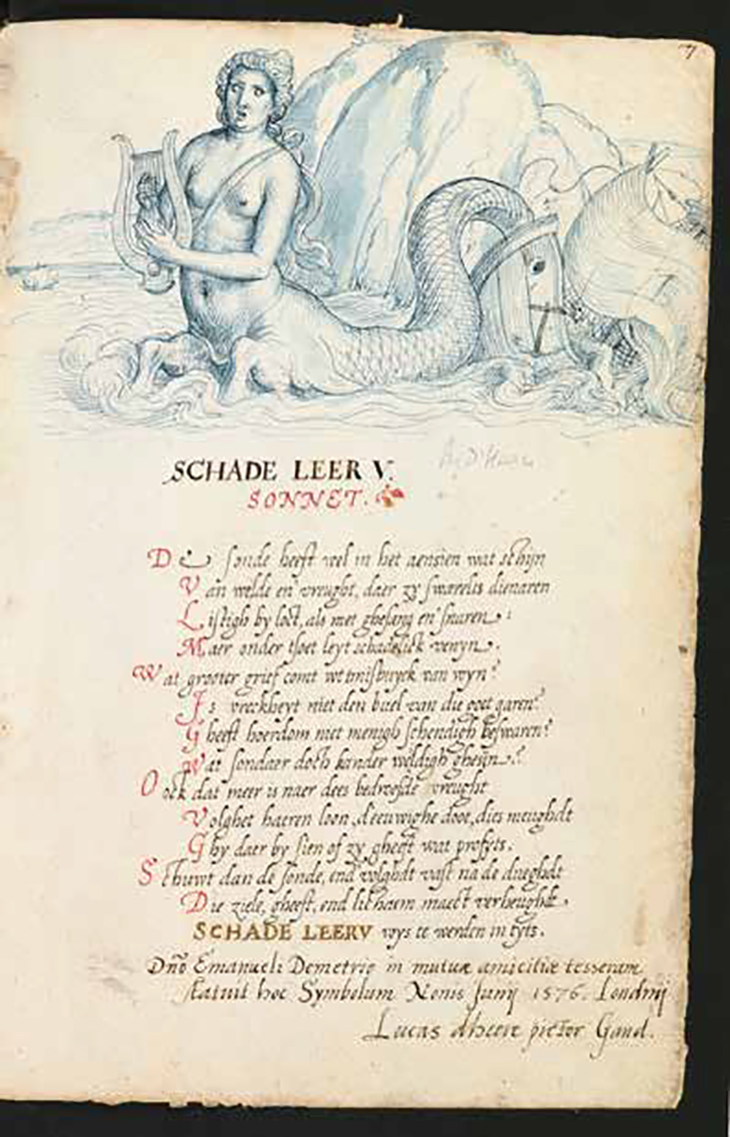 7
SCHADE LEER V.
SONNET.
De sonde heeft wel in het aensien wat schijn
Van welde en vreught, daer zy swærelts dienaren
Listigh by loct, als met ghesang en snaren:
Maer onder tsoet leyt schadelick venyn.
Wat grooter grief comt wt misbruyck van wyn?
Is vreckheyt niet den buel van die goet garen?
Gheeft hoerdom niet menigh schendigh beswaren?
Wat sondaer doch kander weldigh ghesijn?
Oock dat meer is naer dees bedroefde vreught
Volghet haeren loon, d'eeuwighe doot, dies meughdt
Ghy daer by sien of zy gheeft wat profyts.
Schuwt dan de sonde, end volghdt vast na de dueghdt
Die ziele, gheest, end lichaem maect verheughdt.
SCHADE LEERV wys te werden in tyts.
Dño Emanueli Demetrio in mutuæ amicitiæ tesseram
statuit hoc Symbolum Nonis Junij 1576. Londinij
Lucas dheere pictor Gand.